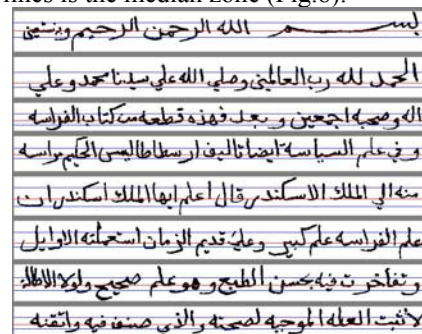 lines is the median zone (Fig.8).
بسم الله الرحمن الرحيم وبه نستعين
الحمد لله رب العالمين وصلي الله علي سيدنا محمد وعلي
اله وصحبه اجمعين وبعد فهذه قطعه من كتاب الفراسه
وفي علم السياسة ايضا تاليف ارسطاطاليس الحكيم مراسه
منه الي الملك الاسكندر قال أعلم ايها الملك اسكندر ان
علم الفراسه علم كبير وعلي قديم الزمان استعملته الاوايل
وتفاخرت فيه بحسن الطبع وهو علم صحيح ولولا الاطالة
لأثبت العله الموجبه لصحته والذي صنف فيه واتقنه